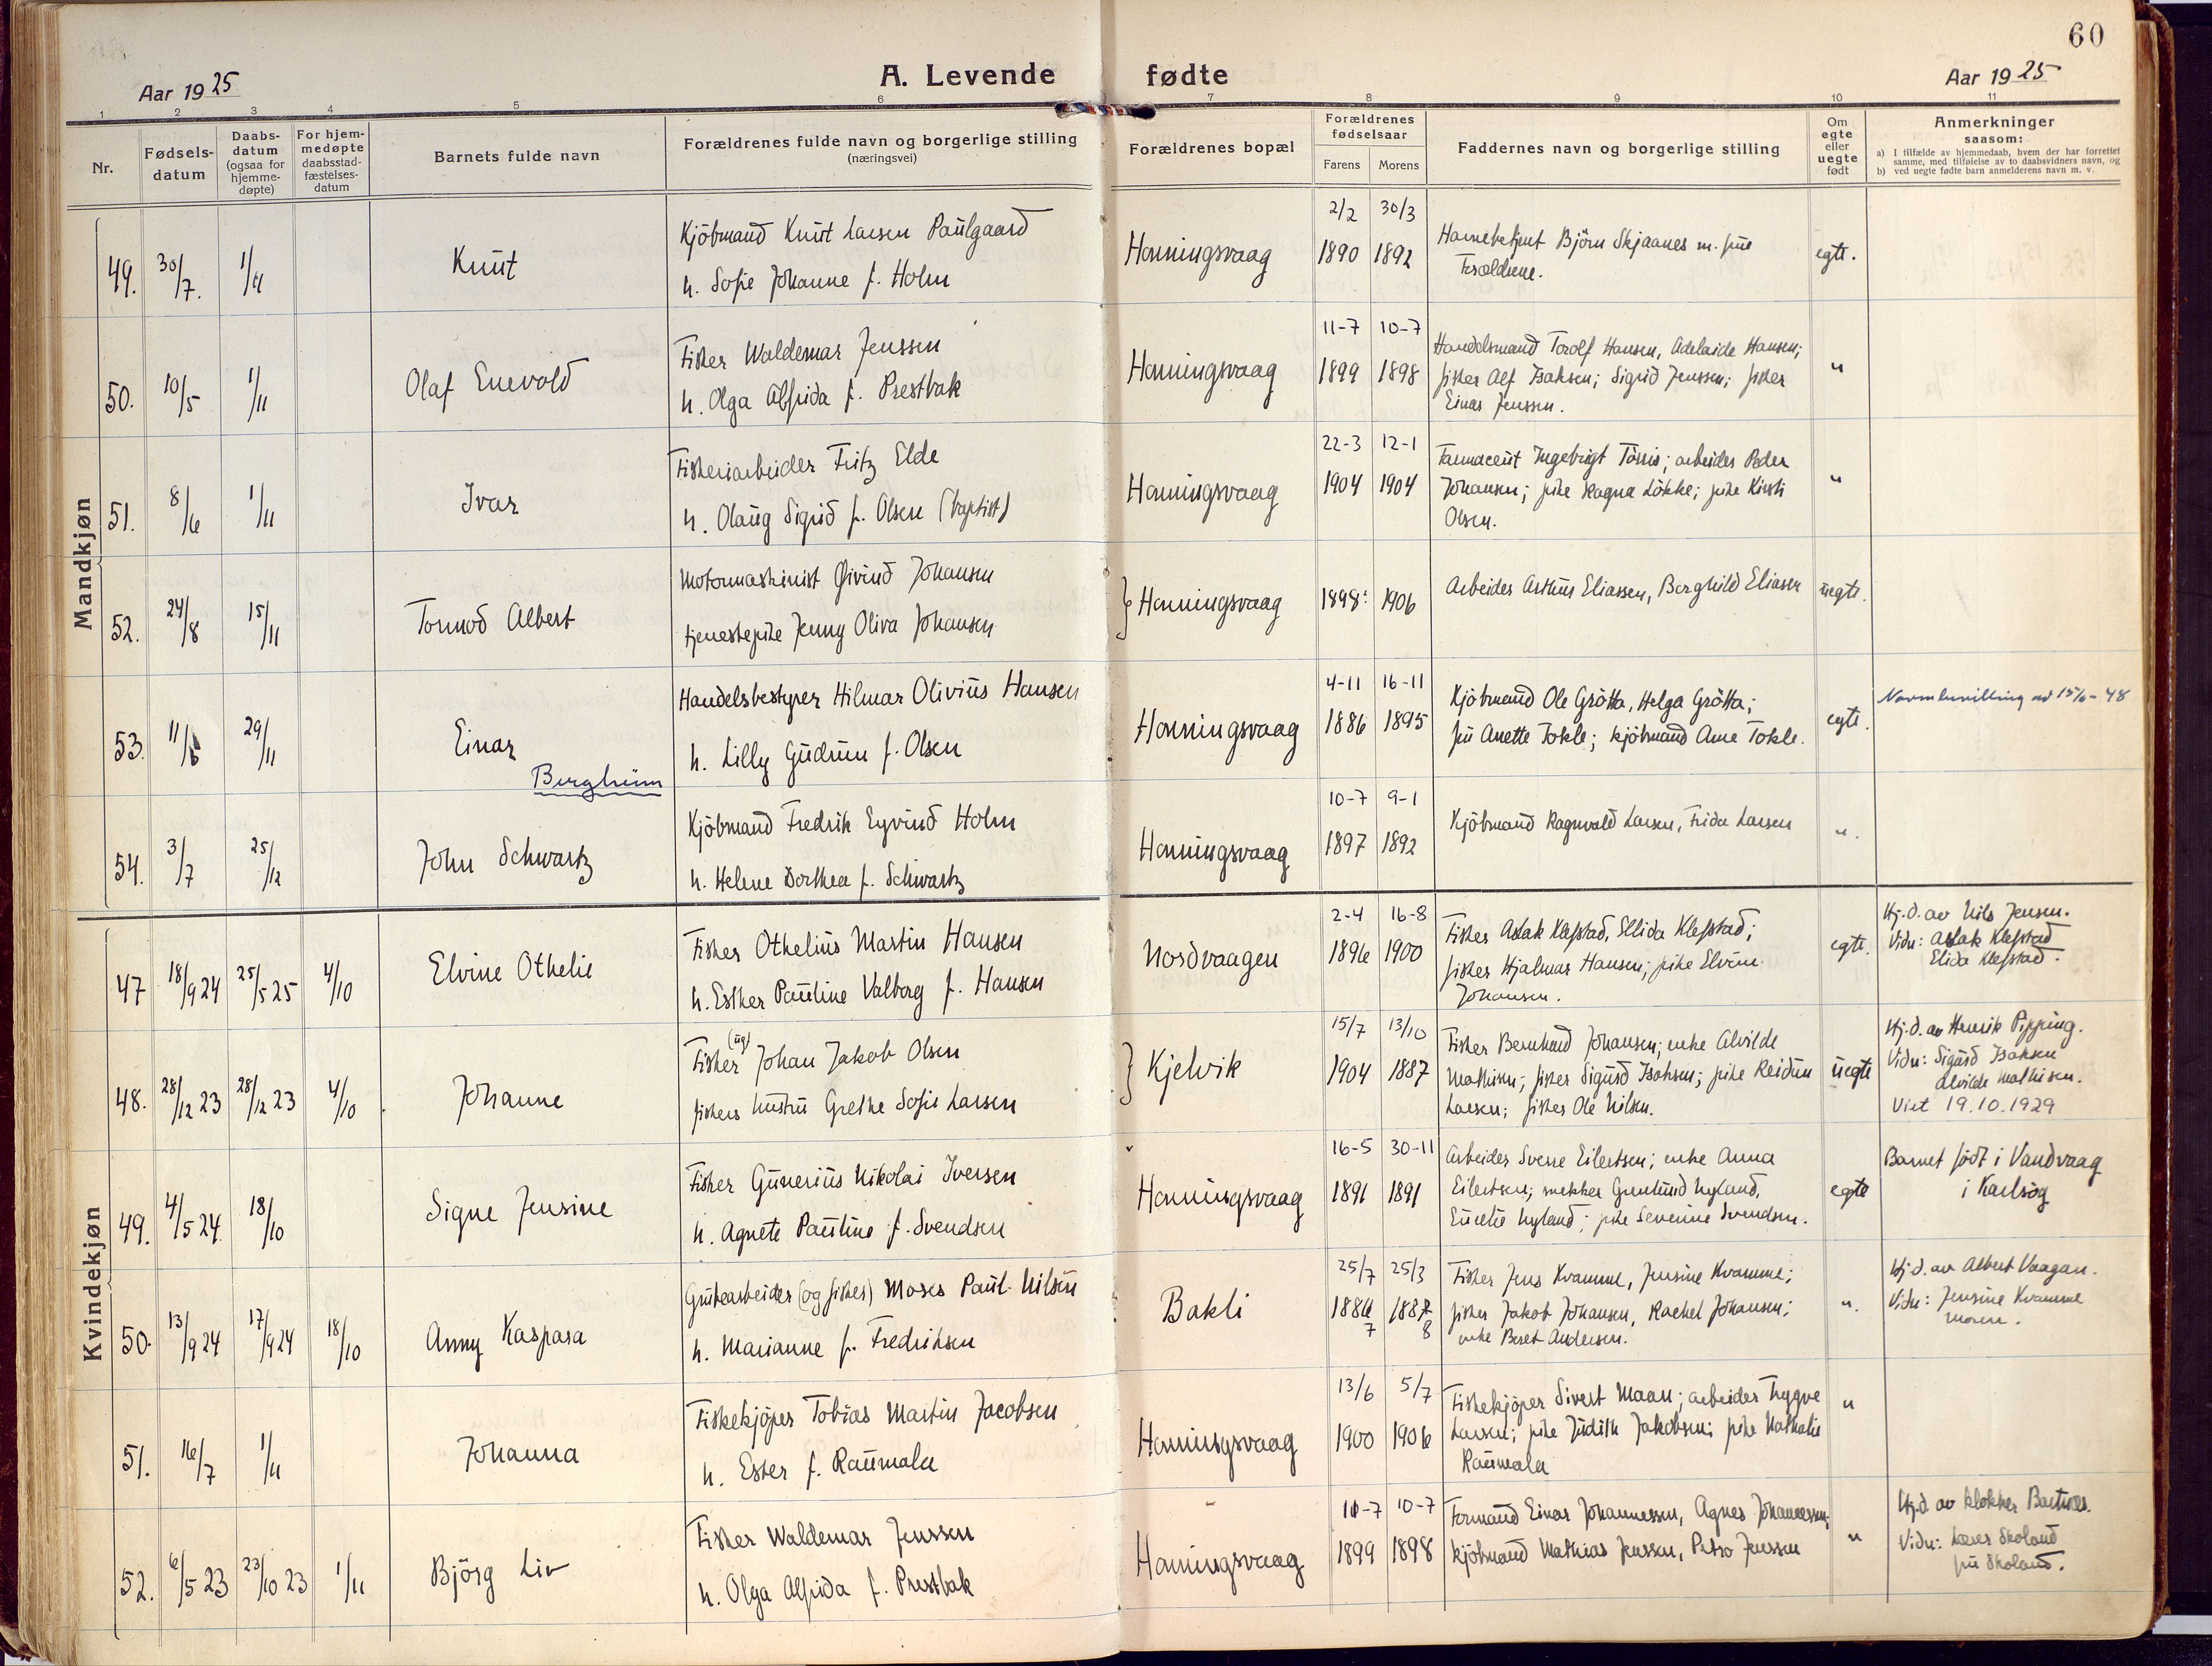 60
Aar 1925
A. Levende fødte
Aar 1925
1 2 3 4 5 6 7 8 9 10 11
Nr.
Fødsels-
datum
Daabs-
datum
(ogsaa for
hjemme-
døpte)
For hjem-
medøpte
daabsstad-
fæstelses-
datum
Barnets fulde navn
Forældrenes fulde navn og borgerlige stilling
(næringsvei)
Forældrenes bopæl
Forældrenes
fødselsaar
Farens Morens
Faddernes navn og borgerlige stilling
Om
egte
eller
uegte
født
Anmerkninger
saasom:
a) I tilfælde av hjemmedaab, hvem der har forrettet
samme, med tilføielse av to daabsvidners navn, og
b) ved uegte fødte barn anmelderens navn m. v.
Mandkjøn
49. 30/7. 1/11 Knut
Kjöbmand Knut Larsen Paulgaard
h. Sofie Johanne f. Holm
Honningsvaag 2/2 1890 30/3 1892
Havnebetjent Björn Skjaanes m. frue
Forældrene.
egte.
50. 10/5 1/11 Olaf Enevold
Fisker Waldemar Jenssen
h. Olga Alfrida f. Prestbak
Honningsvaag 11-7 1899 10-7 1898
Handelsmand Torolf Hansen, Adelaide Hansen;
fisker Alf Isaksen; Sigrid Jenssen; fisker
Einar Jenssen.
"
51. 8/6 1/11 Ivar
Fiskeriarbeider Fritz Elde
h. Olaug Sigrid f. Olsen (baptist)
Honningsvaag 22-3 1904 12-1 1904
Farmaceut Ingebrigt Törris; arbeider Peder
Johansen; pike Ragna Lökke; pike Kirsti
Olsen.
"
52. 24/8 15/11 Tormod Albert
Motormaskinist Øivind Johansen
tjenestepike Jenny Oliva Johansen
Honningsvaag 1898. 1906
Arbeider Arthur Eliassen, Borghild Eliassen
uegte.
53. 11/6 29/11 Einar
Bergheim
Handelsbestyrer Hilmar Olivius Hansen
h. Lilly Gudrun f. Olsen
Honningsvaag 4-11 1886 16-11 1895
Kjöbmand Ole Grötta, Helga Grötta;
fru Anette Tokle; kjöbmand Arne Tokle.
egte.
Navnebevilling av 15/6-48
54. 3/7 25/12 John Schwartz
Kjöbmand Fredrik Eyvind Holm
h. Helene Dorthea f. Schwartz
Honningsvaag 10-7 1897 9-1 1892
Kjöbmand Ragnvald Larsen, Frida Larsen
".
Kvindekjøn
47 18/9 24 25/5 25 4/10 Elvine Othelie
Fisker Othelius Martin Hansen
h. Esther Pauline Valborg f. Hansen
Nordvaagen 2-4 1896 16-8 1900
Fisker Aslak Klefstad, Ellida Klefstad;
fisker Hjalmar Hansen; pike Elvine
Johansen.
egte.
Hj.d. av Nils Jensen.
Vidn: Aslak Klefstad
Elida Klefstad.
48. 28/12 23 28/12 23 4/10 Johanne
Fisker (ug) Johan Jakob Olsen
fiskers hustru Grethe Sofie Larsen
Kjelvik 15/7 1904 13/10 1887
Fisker Bernhard Johansen; enke Alvilde
Mathisen; fisker Sigurd Isaksen; pike Reidun
Larsen; fisker Ole Nilsen.
uegte
Hj.d. av Henrik Pipping.
Vidn: Sigurd Isaksen
Alvilde Mathisen.
Viet 19.10.1929
49. 4/5 24. 18/10 Signe Jensine
Fisker Gunerius Nikolai Iversen
h. Agnete Pauline f. Svendsen
Honningsvaag 16-5 1891 30-11 1891
Arbeider Sverre Eilertsen; enke Anna
Eilertsen; snekker Nyland,
Nyland; pike Severine Svendsen.
egte
Barnet födt i Vandvaag
i Karlsöy
50. 13/9 24 17/9 24 18/10 Anny Kaspara
Grubearbeider (og fisker) Moses Paul Nilsen
h. Marianne f. Fredriksen
Bakli 25/7 1886 7 25/3 1887 8
Fisker Jens Kvamme, Jensine Kvamme;
fisker Jakob Johansen, Rachel Johansen;
enke Beret Andersen.
".
Hj.d. av Albert Vaagan.
Vidn: Jensine Kvamme
moren.
51. 16/7 1/11 Johanna
Fiskekjöper Tobias Martin Jacobsen
h. Ester f. Raumala
Honningsvaag 13/6 1900 5/7 1906
Fiskekjöper Sivert Maan; arbeider Trygve
Larsen; pike Judith Jakobsen; pike Nathalie
Raumala
"
52. 6/5 23 23/10 23 1/11 Björg Liv
Fisker Waldemar Jenssen
h. Olga Alfrida f. Prestbak
Honningsvaag 11-7 1899 10-7 1898
Formand Einar Johannessen, Agnes Johannessen;
kjöbmand Mathias Jenssen, Petra Jenssen
"
Hj.d. av klokker
Vidn: Lærer Skoland
fru Skoland.